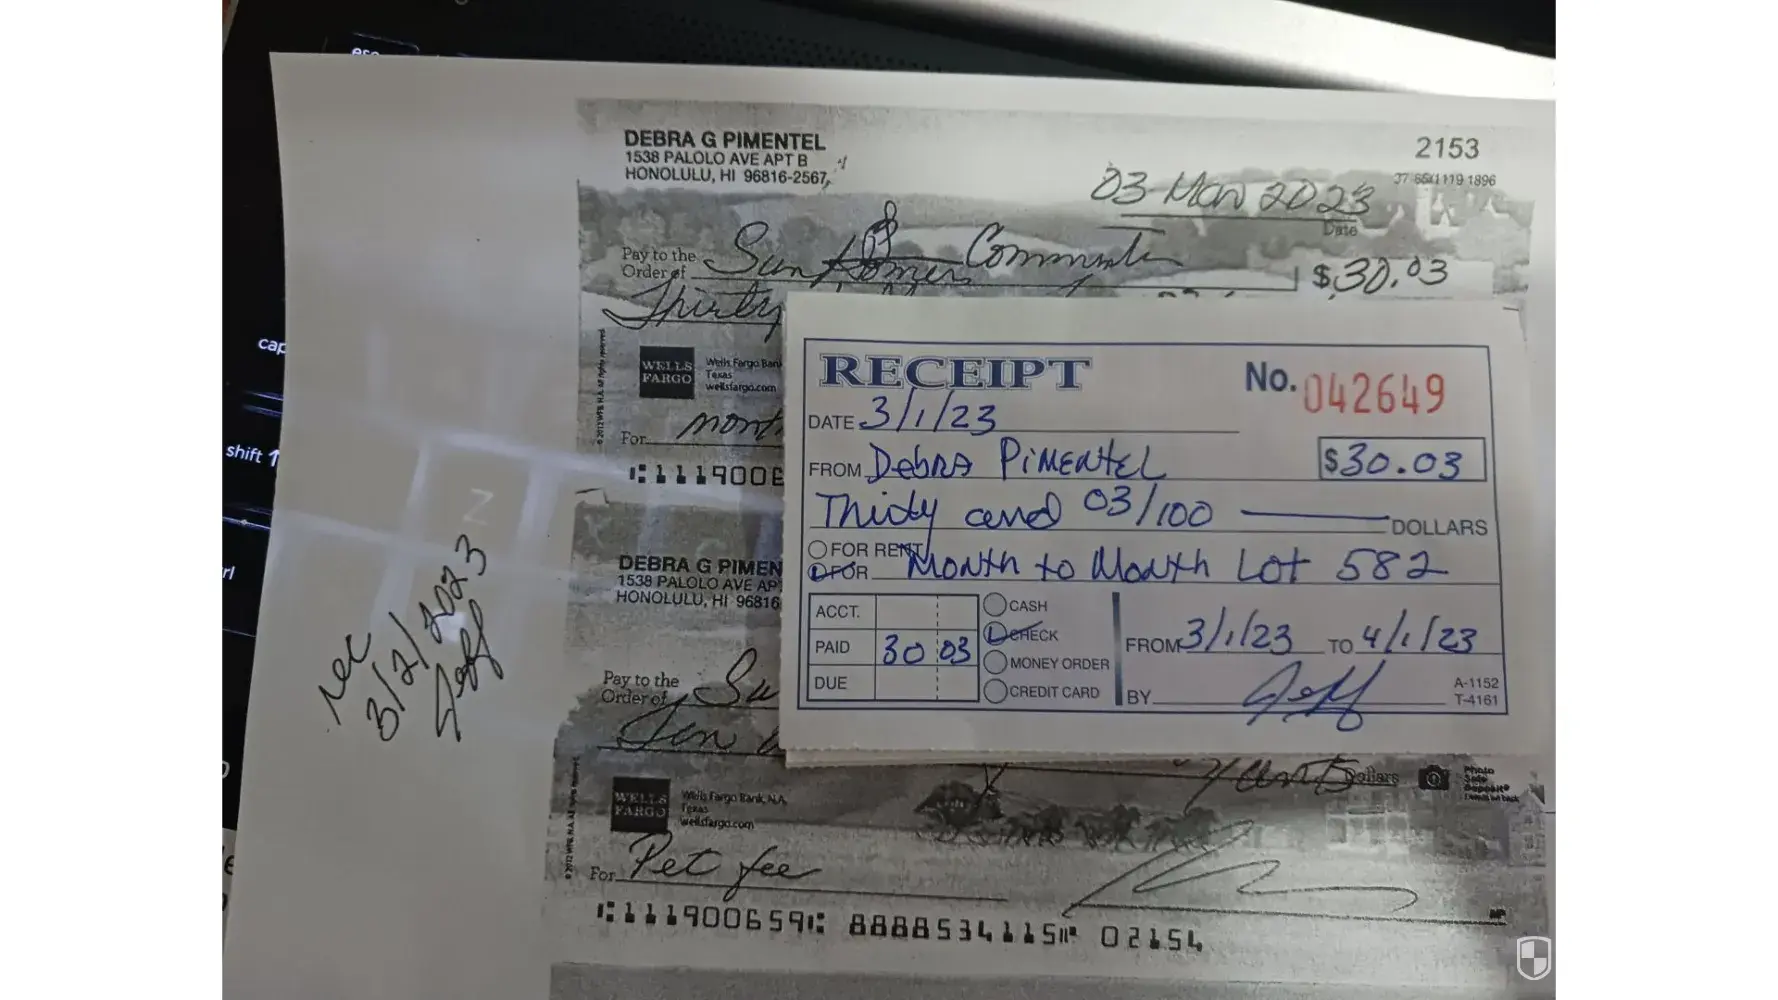 esc
cap
shift
Z
rl
DEBRA G PIMENTEL
1538 PALOLO AVE APT B
HONOLULU, HI 96816-2567
2153
37-65/1119 1896
03 Mar 2023
Date
Pay to the
Order of
Sun Homes Community
$30.03
Thirty
WELLS
FARGO
Wells Fargo Bank
Texas
wellsfargo.com
For
month
⑆1119006
RECEIPT
No. 042649
DATE 3/1/23
FROM Debra Pimentel
$30.03
Thirty and 03/100
DOLLARS
FOR RENT
FOR Month to Month Lot 582
ACCT.
PAID 30 03
DUE
CASH
CHECK
MONEY ORDER
CREDIT CARD
FROM 3/1/23 TO 4/1/23
BY Jeff
A-1152
T-4161
rec
3/2/2023
Jeff
DEBRA G PIMEN
1538 PALOLO AVE AP
HONOLULU, HI 96816
Pay to the
Order of Su
Ten
Dollars
Photo
Safe
Deposit®
WELLS
FARGO
Wells Fargo Bank, N.A.
Texas
wellsfargo.com
For Pet fee
MP
⑆111900659⑆ 8888534115⑈ 02154